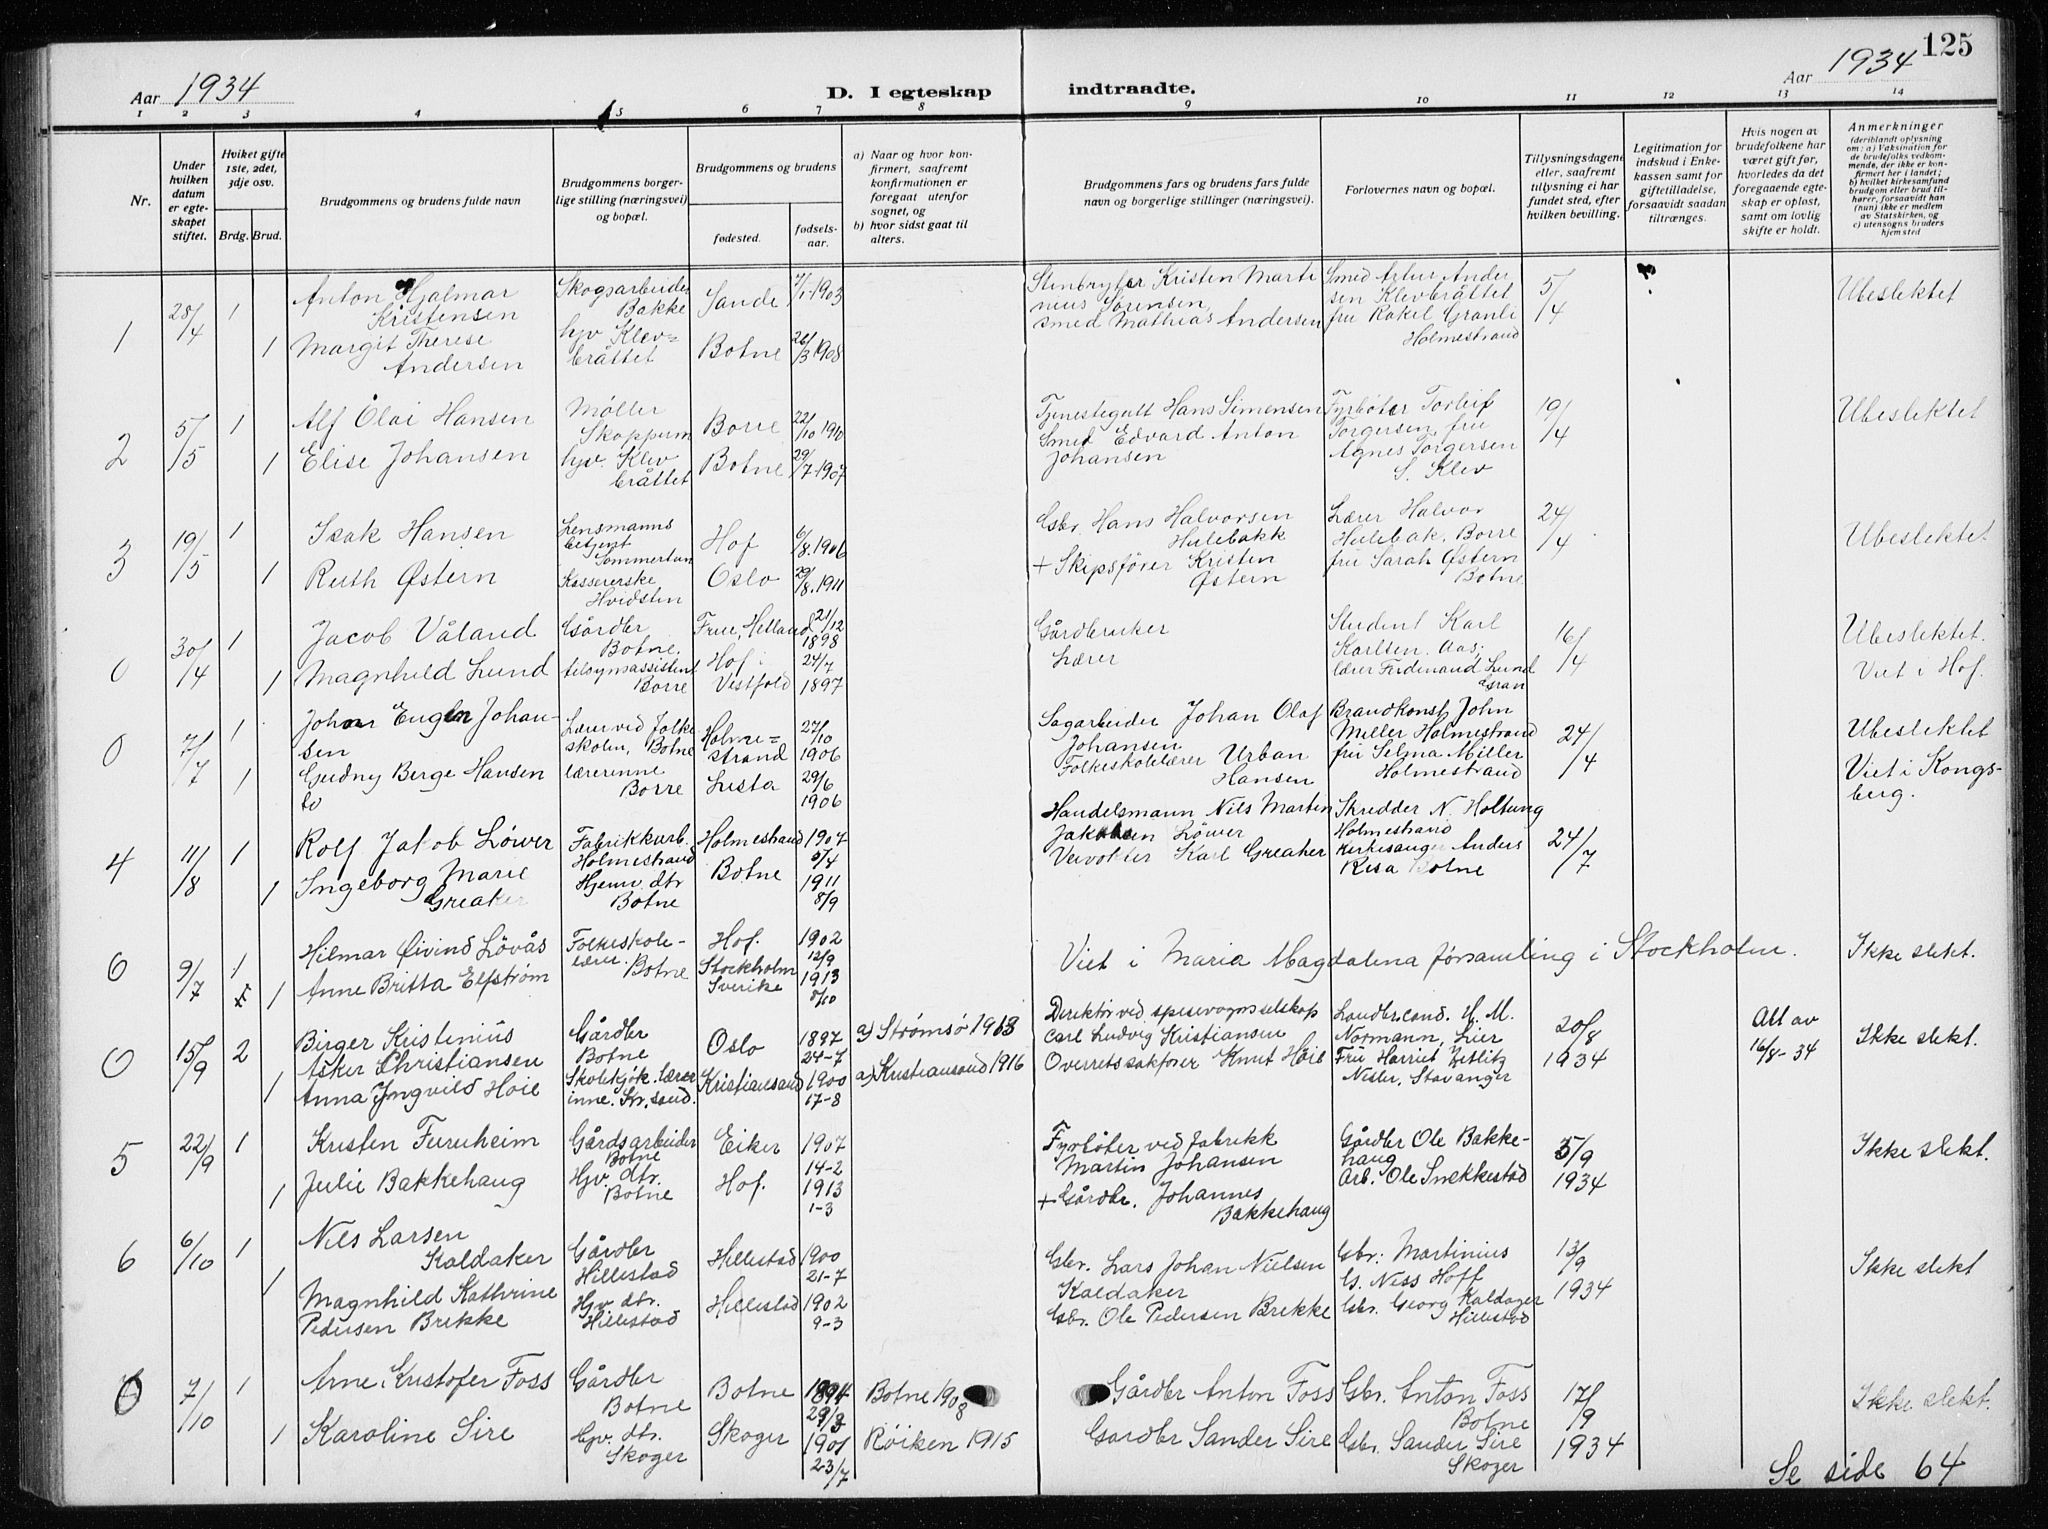 125
Aar 1934
D. I egteskap indtraadte.
Aar 1934
1 2 3 4 5 6 7 8 9 10 11 12 13 14
Nr.
Under hvilken datum er egteskapet stiftet.
Hvilket gifte 1ste, 2det, 3dje osv.
Brdg. Brud.
Brudgommens og brudens fulde navn
Brudgommens borgerlige stilling (næringsvei) og bopæl.
Brudgommens og brudens
fødested. fødselsaar.
a) Naar og hvor konfirmert, saafremt konfirmationen er foregaat utenfor sognet, og
b) hvor sidst gaat til alters.
Brudgommens fars og brudens fars fulde navn og borgerlige stillinger (næringsvei).
Forlovernes navn og bopæl.
Tillysningsdagene eller, saafremt tillysning ei har fundet sted, efter hvilken bevilling.
Legitimation for indskud i Enkekassen samt for giftetilladelse, forsaavidt saadan tiltrænges.
Hvis nogen av brudefolkene har været gift før, hvorledes da det foregaaende egteskap er opløst, samt om lovlig skifte er holdt.
Anmerkninger
(deriblandt oplysning om: a) Vaksination for de brudefolks vedkommende, der ikke er konfirmert her i landet; b) hvilket kirkesamfund brudgom eller brud tilhører, forsaavidt han (hun) ikke er medlem av Statskirken, og c) utensogns bruders hjemsted
1 28/4 1 Anton Hjalmar Kristensen Skogsarbeider Bakke Sande 7/1-1903 Stenbryter Kristen Martinius Sørensen Smed Artur Andersen Klevbråttet 5/4 Ubeslektet
1 Margit Therese Andersen hjv Klevbråttet Botne 26/3 1908 smed Mathias Andersen fru Rakel Granli Holmestrand
2 5/5 1 Alf Olai Hansen Møller Skoppum Borre 22/10 1910 Tjenestegutt Hans Simensen Fyrbøter Torleif Torgersen, fru 19/4 Ubeslektet
1 Elise Johansen hjv. Klevbråttet Botne 29/7-1907 Smed Edvard Anton Johansen Agnes Torgersen S. Klev
3 19/5 1 Isak Hansen Lensmannsbetjent Sommertun Hof 6/8.1906 Gbr. Hans Halvorsen Hulebakk Lærer Halvor Hulebak, Borre 24/4 Ubeslektet
1 Ruth Østern Kassererske Hvidsten Oslo 29/8.1911 + Skipsfører Kristen Østern fru Sarah Østern Botne
0 30/4 1 Jacob Våland Gårdbr Botne. Frue, Helland 21/12 1898 Gårdbruker Student Karl Karlsen, Aas; 16/4 Ubeslektet.
1 Magnhild Lund tilsynsassistent Borre Hof i Vestfold 24/7 1897 Lærer lærer Ferdinand Lund Gran Viet i Hof.
0 7/7 1 Johan Eugen Johansen Lærer ved folkeskolen, Botne Holmestrand 27/10 1906 Sagarbeider Johan Olaf Johansen Brandkonst. John Miller Holmestrand 24/4 Ubeslektet
1 Gudny Berge Hansen lærerinne Borre Lista 29/6 1906 Folkeskolelærer Urban Hansen fru Selma Miller Holmestrand Viet i Kongsberg.
4 11/8 1 Rolf Jakob Löwer Fabrikkarb. Holmestrand Holmestrand 1907 5/4 Handelsmann Nils Martin Jakobsen Löwer Skredder N. Holtung Holmestrand 24/7
1 Ingeborg Marie Greaker Hjemv. dtr Botne Botne 1911 8/9 Veivokter Karl Greaker Kirkesanger Anders Risa Botne
6 9/7 1 Hilmar Øivind Lövås Folkeskolelærer Botne Hof. 1902 12/9 Viet i Maria Magdalena församling i Stockholm. Ikke slekt.
1 Anne Britta Elfström Stockholm Sverike 1913 8/10
0 15/9 2 Birger Kristinius Asker Christiansen Gårdbr Botne Oslo 1897 24-7 a) Strømsø 1913 Direktør ved spisevognsselskap Carl Ludvig Kristiansen Landbr.cand. H. M. Normann, Lier 20/8 1934 Att av 16/8-34 Ikke slekt.
1 Anna Yngvild Höie Skolekjøk.lærerinne. Kr.sand. Kristiansand 1900 17-8 a) Kristiansand 1916 Overretssakfører Knut Höie Fru Harriet Zetlitz Nisler, Stavanger
5 22/9 1 Kristen Furuheim Gårdsarbeider Botne Eiker 1907 14-2 Fyrbøter ved fabrikk Martin Johansen Gårdbr Ole Bakkehaug 5/9 1934 Ikke slekt.
1 Julie Bakkehaug Hjv. dtr. Botne Hof. 1913 1-3 + Gårdbr. Johannes Bakkehaug Arb. Ole Snekkestad
6 6/10 1 Nils Larsen Kaldaker Gårdbr Hillestad Hillestad 1900 21-7 Gbr. Lars Johan Nielsen Kaldaker Gbr: Martinius G. Niss Hoff 13/9 1934 Ikke slekt
1 Magnhild Kathrine Pedersen Brekke Hjv. dtr. Hillestad Hillestad 1902 9-3 Gbr. Ole Pedersen Brekke Gbr. Georg Kaldager Hillestad
0 7/10 1 Arne Kristofer Foss Gårdbr Botne Botne 1894 29/3 Botne 1908 Gårdbr Anton Foss Gbr. Anton Foss Botne 17/9 1934 Ikke slekt.
1 Karoline Sire Hjv. dtr. Skoger Skoger 1901 23/7 Røiken 1915 Gardbr Sander Sire Gbr. Sander Sire Skoger
Se side 64